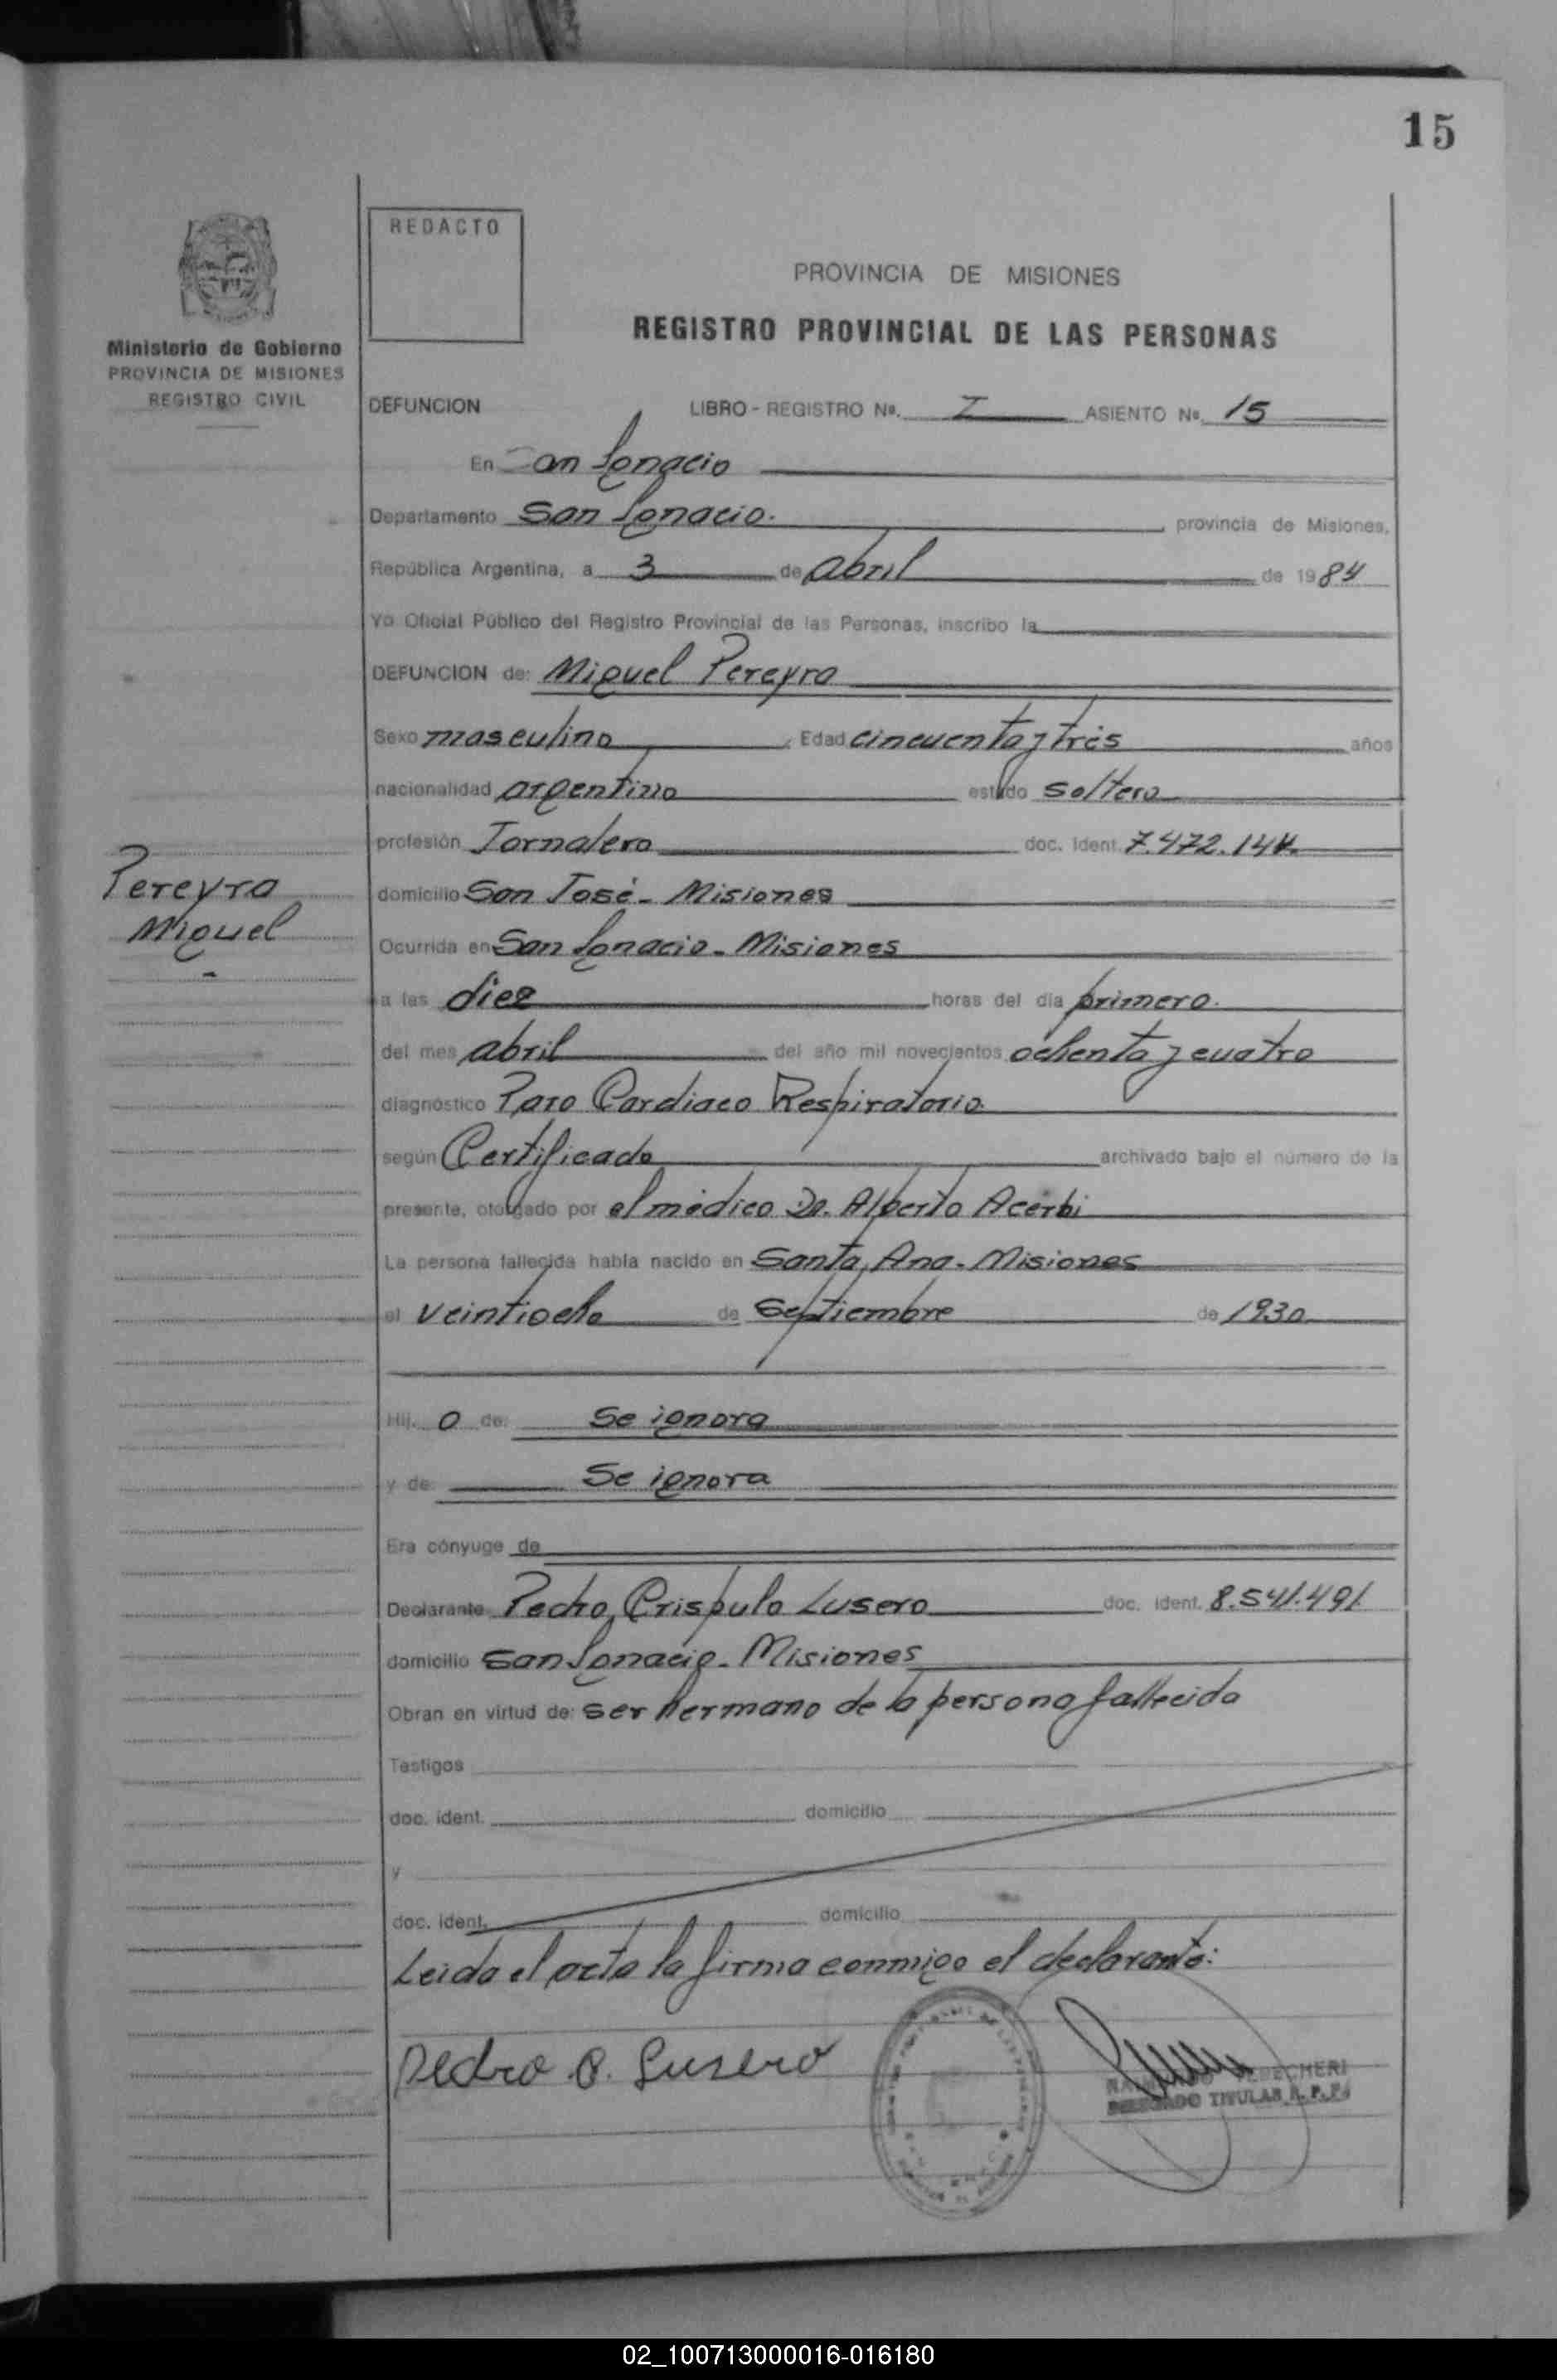 15
REDACTO
PROVINCIA DE MISIONES
REGISTRO PROVINCIAL DE LAS PERSONAS
Ministerio de Gobierno
PROVINCIA DE MISIONES
REGISTRO CIVIL
DEFUNCION LIBRO - REGISTRO Nº. I ASIENTO Nº. 15
En San Ignacio
Departamento San Ignacio. provincia de Misiones,
República Argentina, a 3 de abril de 1984
Yo Oficial Público del Registro Provincial de las Personas, inscribo la
DEFUNCION de: Miguel Pereyra
Sexo masculino Edad cincuenta y tres años
nacionalidad argentino estado soltero
profesión Jornalero doc. ident. 7.472.144
Pereyra
Miguel
domicilio San José - Misiones
Ocurrida en San Ignacio - Misiones
a las diez horas del día primero.
del mes abril del año mil novecientos ochenta y cuatro
diagnóstico Paro Cardiaco Respiratorio.
según Certificado archivado bajo el número de la
presente, otorgado por el médico Dr. Alberto Acerbi
La persona fallecida había nacido en Santa Ana - Misiones
el veintiocho de Septiembre de 1930
Hij. o de: Se ignora
y de: Se ignora
Era cónyuge de
Declarante Pedro Crispulo Lusero doc. ident. 8.541.491
domicilio San Ignacio - Misiones
Obran en virtud de: ser hermano de la persona fallecida
Testigos
doc. ident. domicilio
y
doc. ident. domicilio
Leida el acta la firma conmigo el declarante:
Pedro C. Lusero
DELEGADO TITULAR R. P. P.
02_100713000016-016180